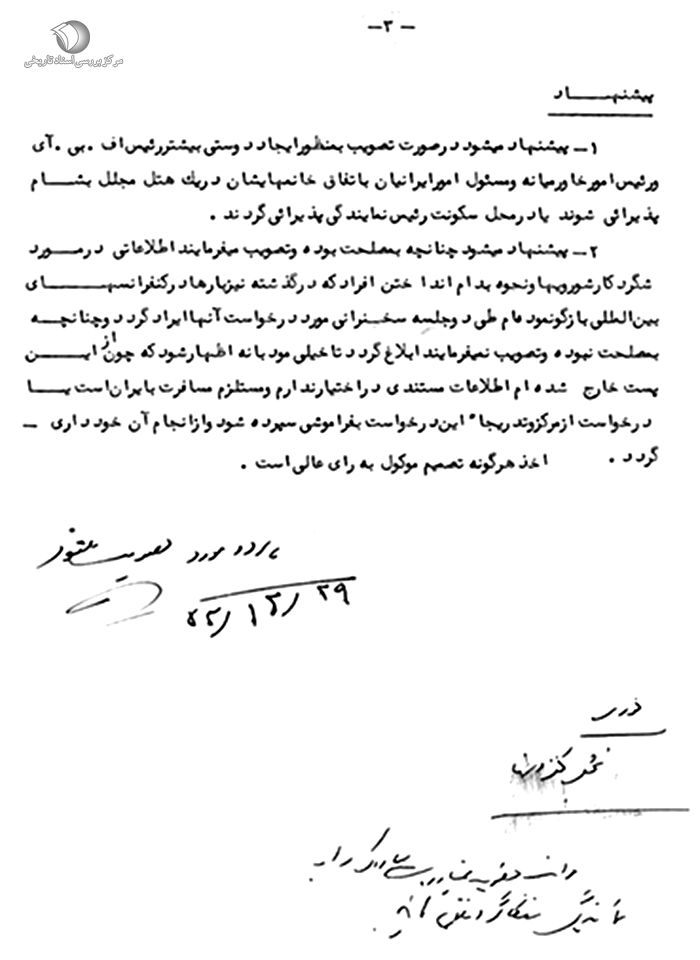 -۳-
مرکز بررسی اسناد تاریخی
پیشنهاد
۱- پیشنهاد میشود درصورت تصویب بمنظور ایجاد دوستی بیشتر رئیس اف . بی . آی
و رئیس امور خاورمیانه و مسئول امور ایرانیان باتفاق خانمهایشان در یك هتل مجلل بشام
پذیرائی شوند یا در محل سکونت رئیس نمایندگی پذیرائی گردند .
۲- پیشنهاد میشود چنانچه بمصلحت بوده و تصویب میفرمایند اطلاعاتی در مورد
شگرد کار شورویها و نحوه بدام انداختن افراد که در گذشته نیز بارها در کنفرانسهای
بین‌المللی بازگو نموده‌ام طی دو جلسه سخنرانی مورد درخواست آنها ایراد گردد و چنانچه
بمصلحت نبوده و تصویب نمیفرمایند ابلاغ گردد تا خیلی مودبانه اظهار شود که چون از این
پست خارج شده‌ام اطلاعات مستندی در اختیار ندارم و مستلزم مسافرت بایران است یا
درخواست از مرکز و تدریجا" این درخواست بفراموشی سپرده شود و از انجام آن خودداری -
گردد . اخذ هرگونه تصمیم موکول به رای عالی است .
مورد تصویب
۵۲/۱۲/۲۹